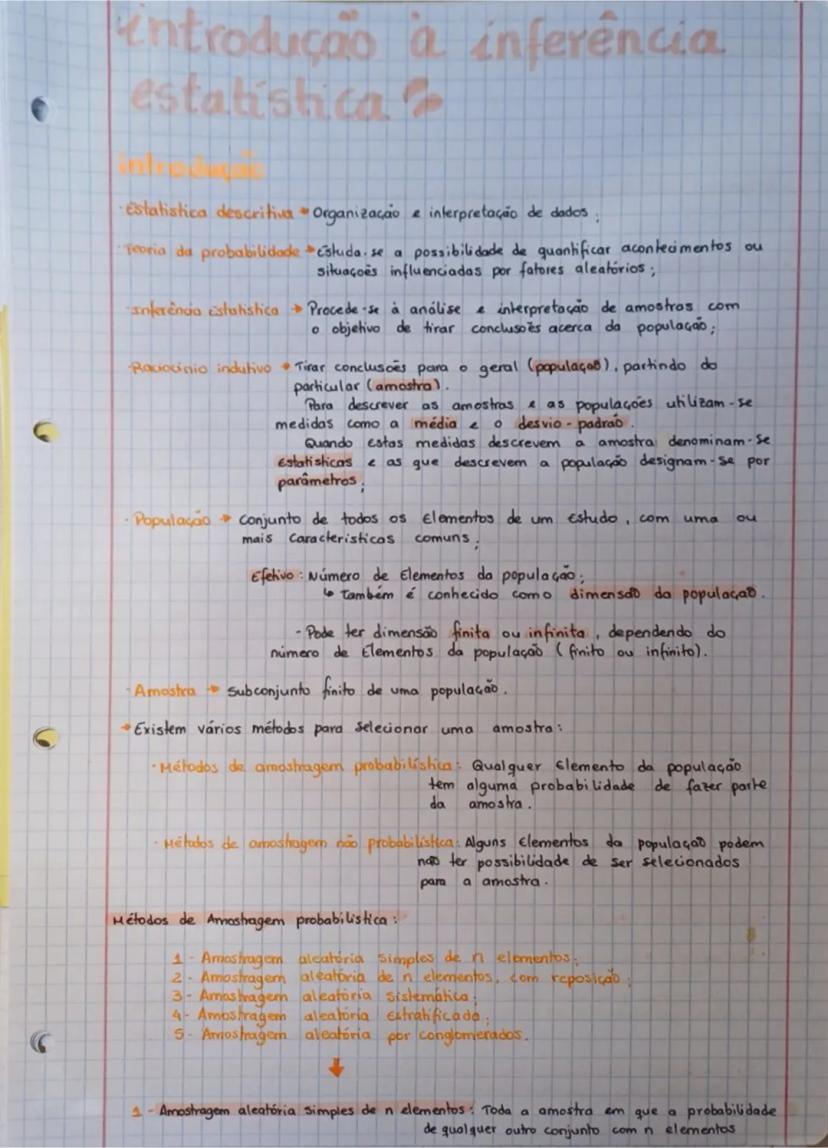 introdução à inferência
estatística
introdução
· Estatistica descritiva → Organização e interpretação de dados;
· Teoria da probabilidade → Estuda-se a possibilidade de quantificar acontecimentos ou
situaçoẽs influenciadas por fatores aleatórios;
· Inferência Estatistica → Procede-se à análise e interpretação de amostras com
o objetivo de tirar conclusoẽs acerca da população;
· Raciocinio indutivo → Tirar conclusoẽs para o geral (população), partindo do
particular (amostra).
Para descrever as amostras e as populações utilizam-se
medidas como a média e o desvio-padrão.
Quando estas medidas descrevem a amostra denominam-se
Estatisticas e as que descrevem a população designam-se por
parâmetros;
· População → Conjunto de todos os Elementos de um Estudo, com uma ou
mais Caracteristicas comuns;
Efetivo: Número de Elementos da população;
↳ Também é conhecido como dimensão da população.
- Pode ter dimensão finita ou infinita, dependendo do
número de Elementos da população (finito ou infinito).
· Amostra → Subconjunto finito de uma população.
→ Existem vários métodos para Selecionar uma amostra:
· Métodos de amostragem probabilística: Qualquer Elemento da população
tem alguma probabilidade de fazer parte
da amostra.
· Métodos de amostragem não probabilística: Alguns Elementos da população podem
não ter possibilidade de ser selecionados
para a amostra.
Métodos de Amostragem probabilistica:
1 - Amostragem aleatória Simples de n elementos;
2 - Amostragem aleatória de n elementos, com reposição;
3 - Amostragem aleatória Sistemática;
4 - Amostragem aleatória Estratificada;
5 - Amostragem aleatória por conglomerados.
↓
1 - Amostragem aleatória Simples de n elementos: Toda a amostra em que a probabilidade
de qualquer outro conjunto com n elementos